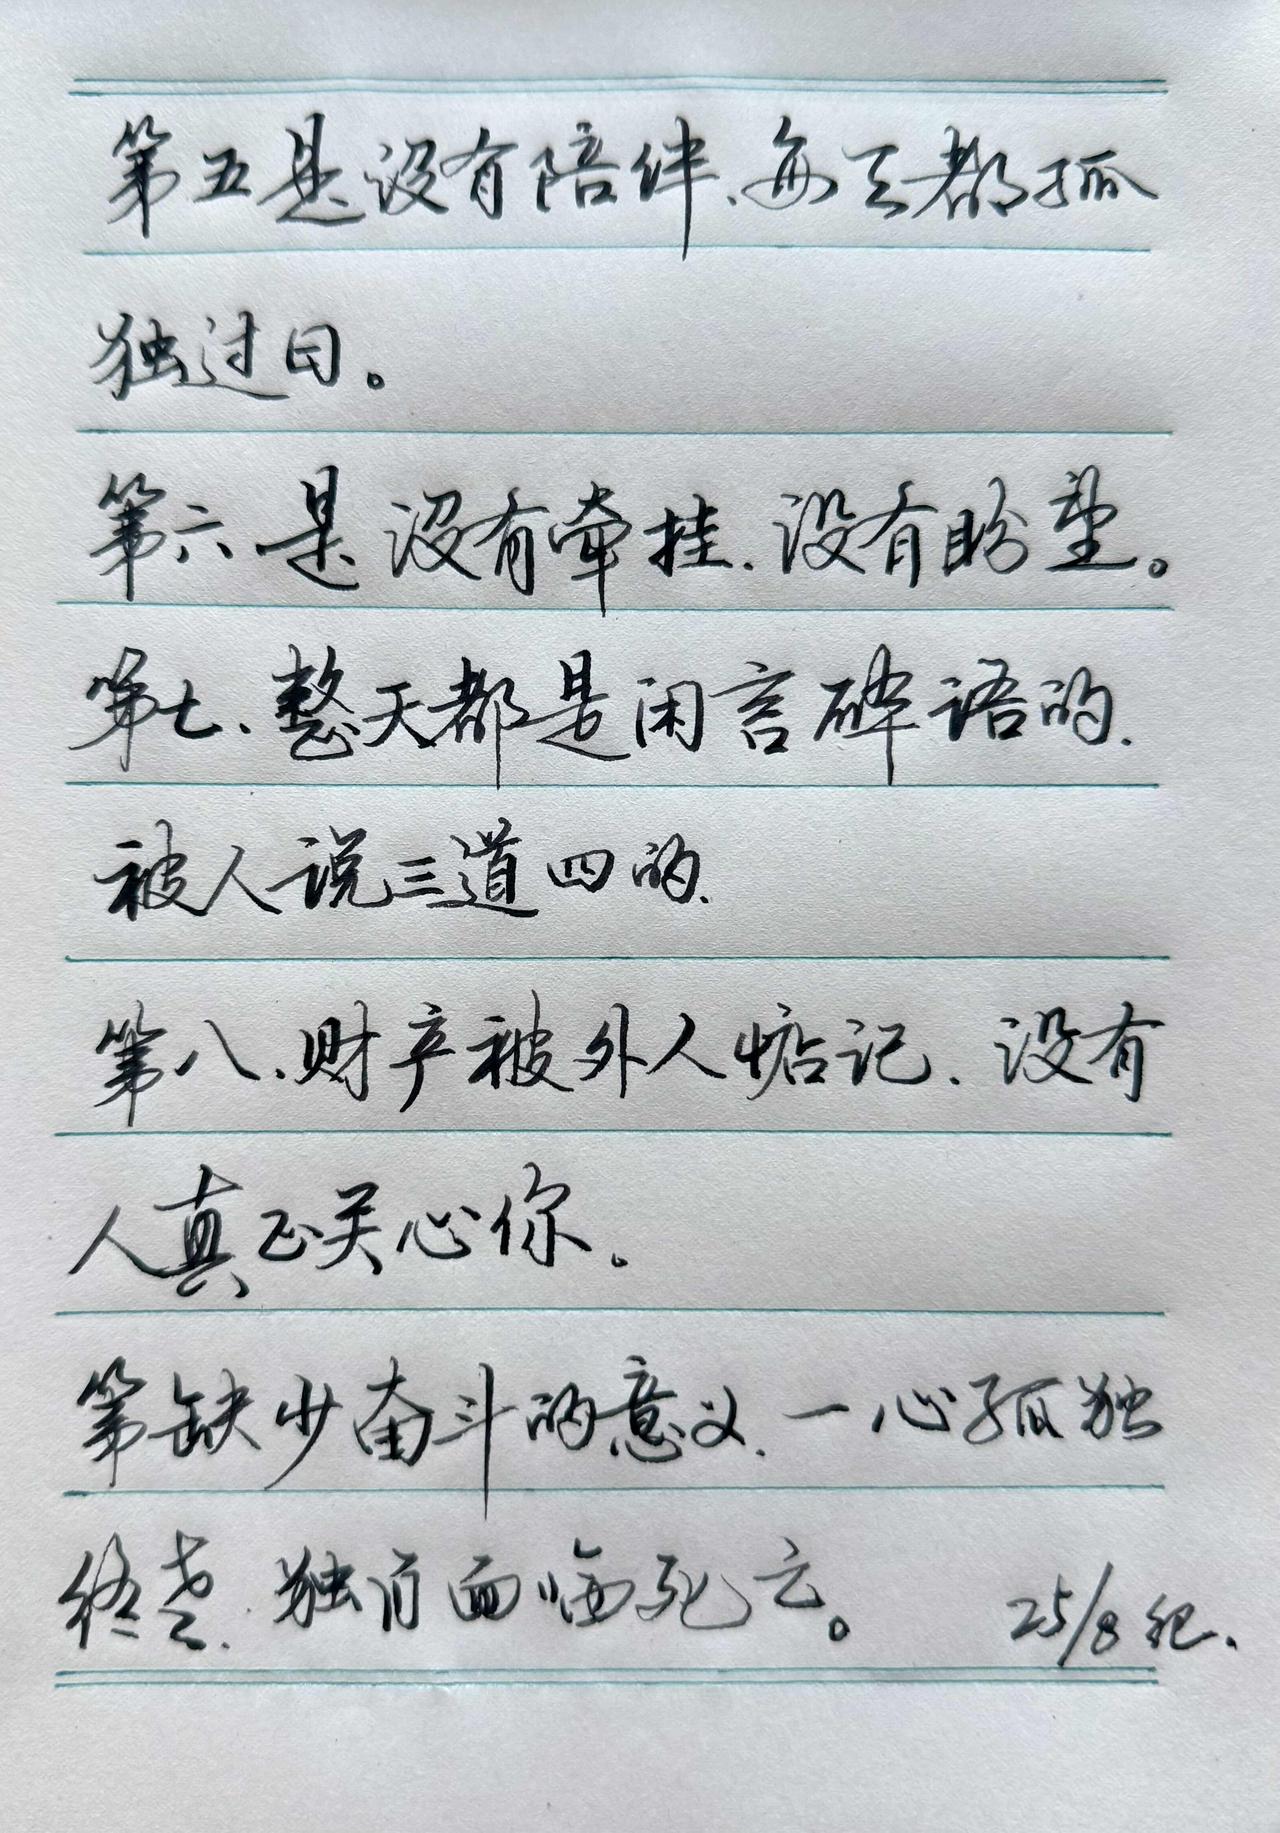 第五是没有陪伴、每天都孤
独过日。
第六是没有牵挂、没有盼望。
第七、整天都是闲言碎语的、
被人说三道四的、
第八、财产被外人惦记、没有
人真正关心你。
第缺少奋斗的意义、一心孤独
终老、独自面临死亡。
25/8